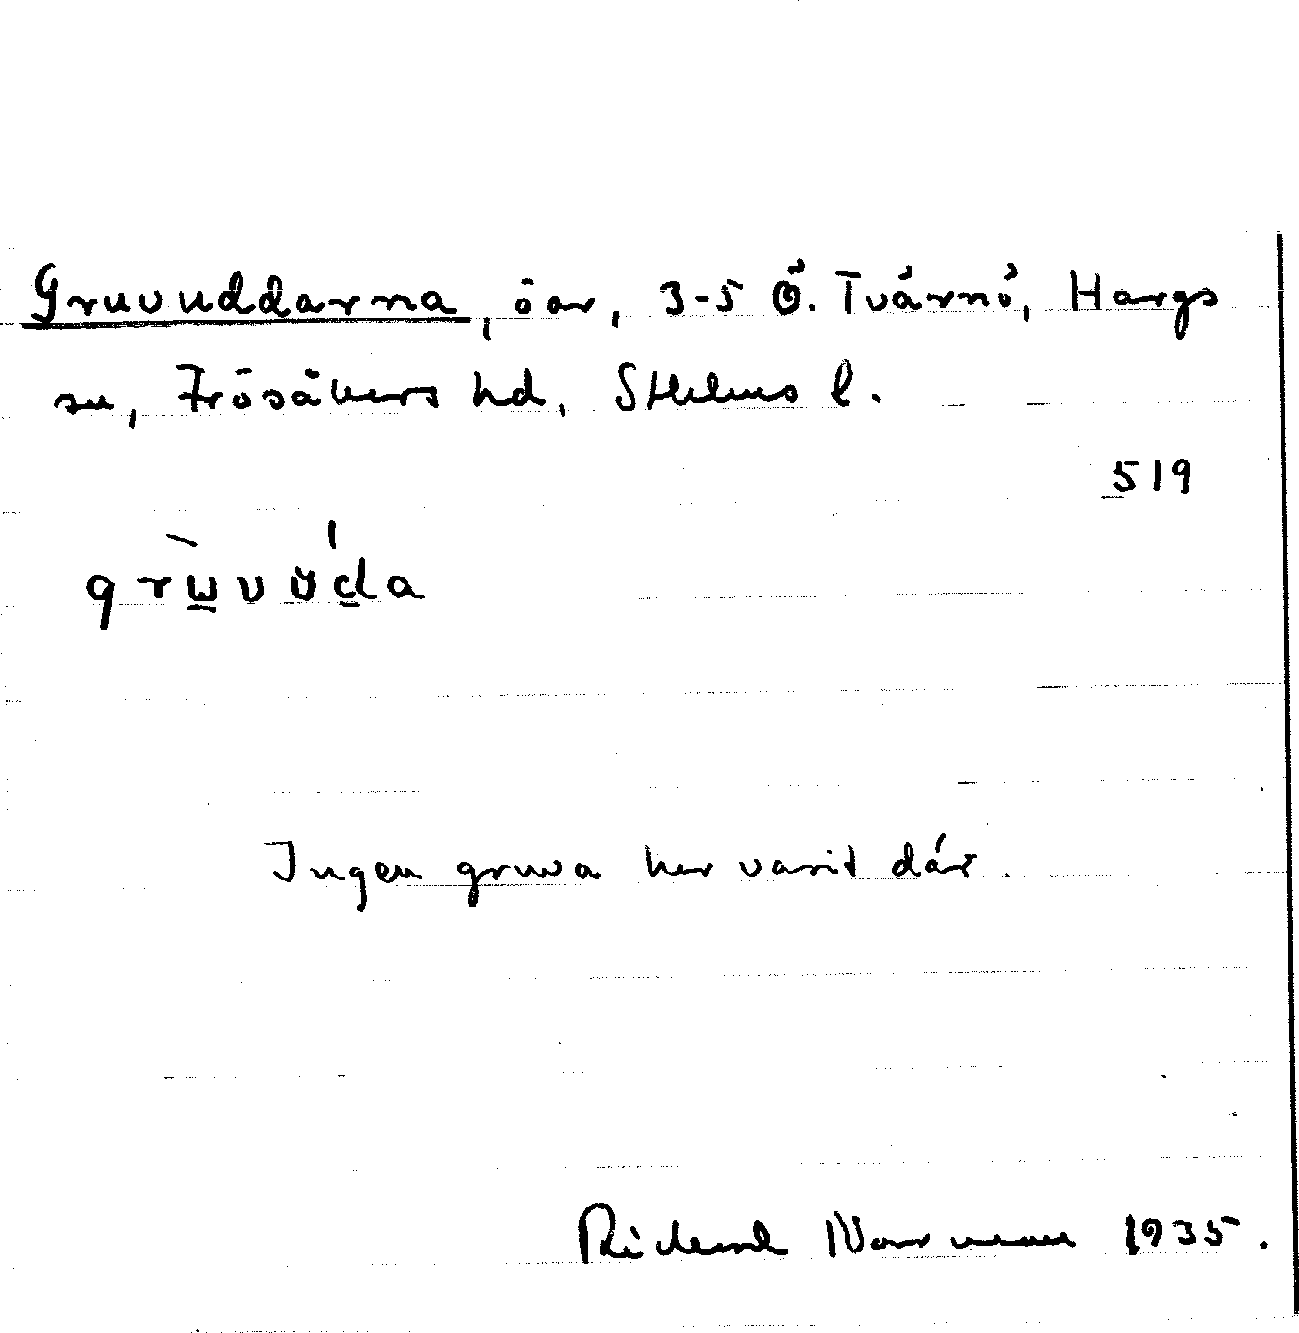 Gruvuddarna, öar, 3-5 Ö. Tvärnö, Hargs
sn, Frösåkers hd, Sthlms l.
519
grɯ̀vʊ̆d̲a
Ingen gruva har varit där.
Rickard Norrman 1935.